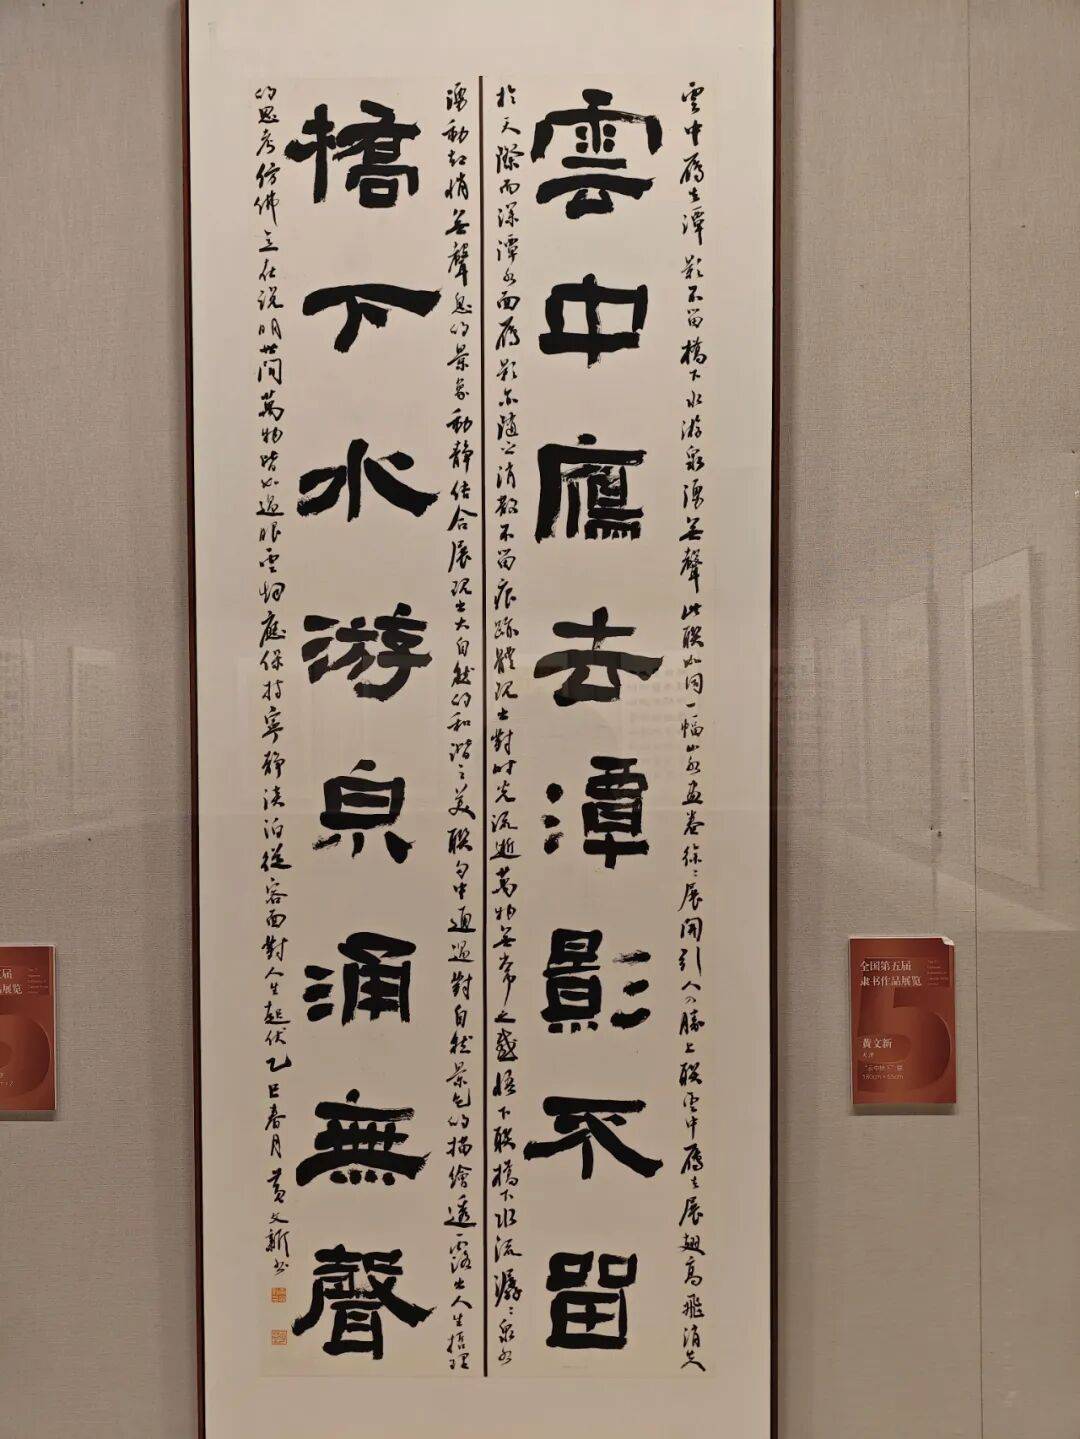 雲中鷹去潭影不留橋下水游泉湧無聲此联如同一幅山水画卷徐〻展開引人入勝上联雲中鷹去展翅高飛消失
雲中鷹去潭影不留
於天際而深潭水面鷹影亦随之消散不留痕跡體现出對时光流逝萬物無常之感悟下联橋下水流潺〻泉水
湧動却悄無聲息的景象動静结合展现出大自然的和谐之美联句中通過對自然景色的描繪透露出人生哲理
橋下水游泉涌無聲
的思考仿佛在说明世間萬物皆如過眼雲烟應保持寧静淡泊從容面對人生起伏乙巳春月黄文新书
全国第五届
隶书作品展览
5
黄文新
天津
180cm×65cm
届
品展览